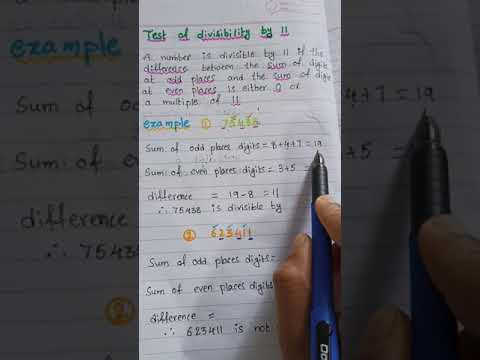 Test of divisibility by 11
A number is divisible by 11 if the
difference between the sum of digits
at odd places and the sum of digits
at even places is either 0 or
a multiple of 11
example ① 75438
Sum of odd places digits = 8+4+7 = 19
Sum of even places digits = 3+5 =
difference = 19-8 = 11
∴ 75438 is divisible by
② 623411
Sum of odd places digits =
Sum of even places digits =
difference =
∴ 623411 is not